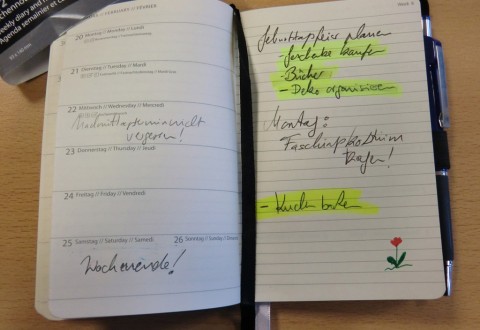 chennot
ekly diary and
Agenda semainier et ca
FEBRUARY // FÉVRIER
20 Montag // Monday // Lundi
21 Dienstag // Tuesday // Mardi
22 Mittwoch // Wednesday // Mercredi
Nachmittagtermin nicht
vergessen!
23 Donnerstag // Thursday // Jeudi
24 Freitag // Friday // Vendredi
25 Samstag // Saturday // Samedi
26 Sonntag // Sunday // Dimanc
Wochenende!
Week 8
Geburtstagsfeier planen
- Geschenke kaufen
- Bücher
- Deko organisieren
Montag:
Faschingskostüm
tragen!
- Kuchen backen